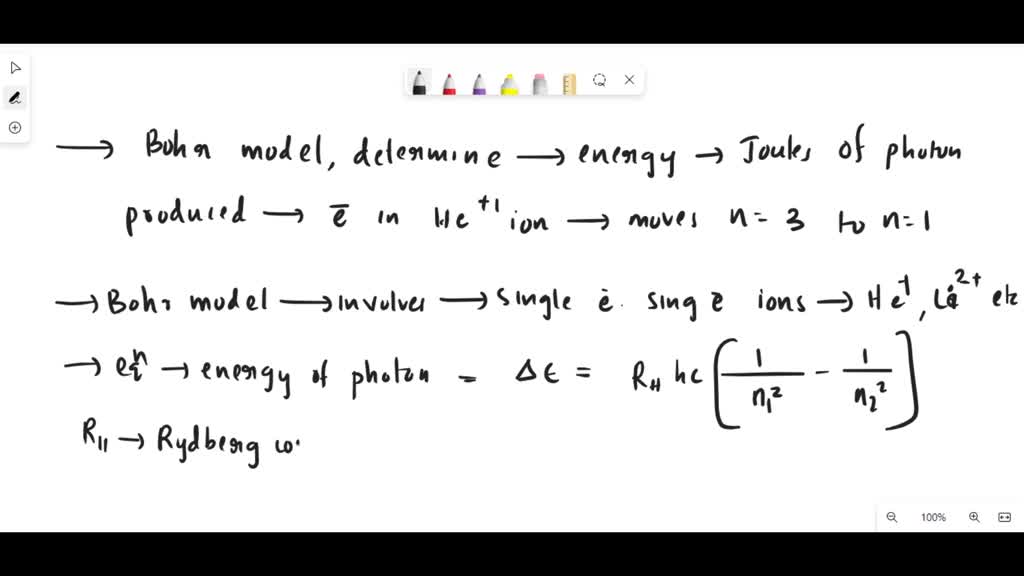 → Bohr model, determine → energy → Joules of photon
produced → ē in He⁺¹ ion → moves n = 3 to n = 1
→ Bohr model → involves → single ē. single ē ions → He⁺, Li²⁺ etc
→ eqⁿ → energy of photon = Δε = R_H hc [1/n₁² − 1/n₂²]
R_H → Rydberg co
100%